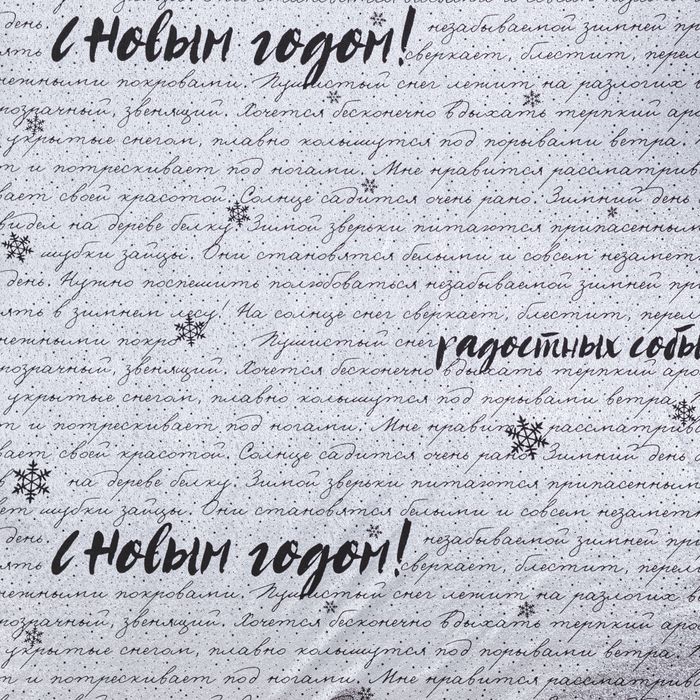 день. незабываемой зимней при
С Новым годом!
лять сверкает, блестит, перел
нежными покровами. Пушистый снег лежит на разлогих в
розрачный, звенящий. Хочется бесконечно вдыхать терпкий аро
укрытые снегом, плавно колышутся под порывами ветра.
т и потрескивает под ногами. Мне нравится рассматрив
вает своей красотой. Солнце садится очень рано. Зимний день
видел на дереве белку. Зимой зверьки питаются припасенным
шубки зайцы. Они становятся белыми и совсем незамет
день. Нужно поспешить полюбоваться незабываемой зимней при
лять в зимнем лесу! На солнце снег сверкает, блестит, перел
нежными покро Пушистый снег
радостных собы
розрачный, звенящий. Хочется бесконечно вдыхать терпкий аро
укрытые снегом, плавно колышутся под порывами ветра.
т и потрескивает под ногами. Мне нравит рассматрив
вает своей красотой. Солнце садится очень рано. Зимний день
на дереве белку. Зимой зверьки питаются припасенным
ет шубки зайцы. Они становятся белыми и совсем незамет
день. незабываемой зимней при
С Новым годом!
лять сверкает, блестит, перели
нежными покровами. Пушистый снег лежит на разлогих ве
розрачный, звенящий. Хочется бесконечно вдыхать терпкий аро
укрытые снегом, плавно колышутся под порывами ветра.
т и потрескивает под ногами. Мне нравится рассматрив